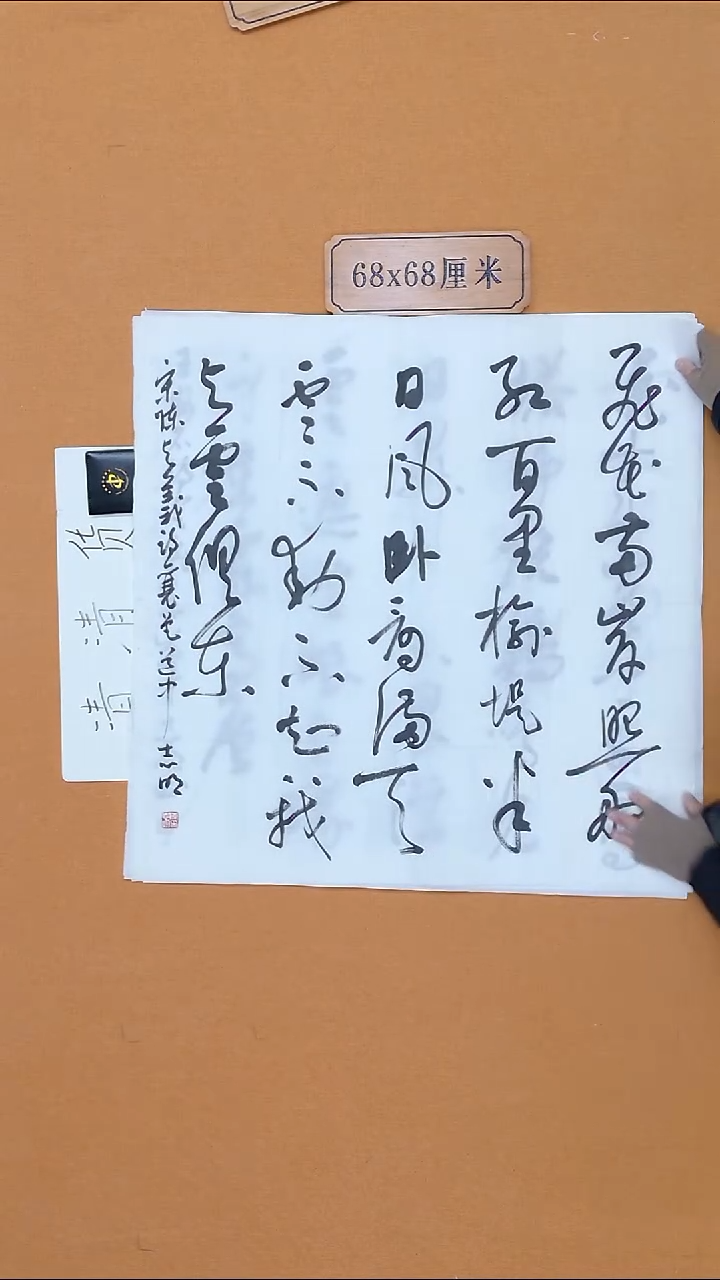 68x68厘米
飞花两岸照船
红百里榆堤半
日风卧看满天
云不动不知我
与云俱东
宋陈与义诗襄邑道中 志明
清清货